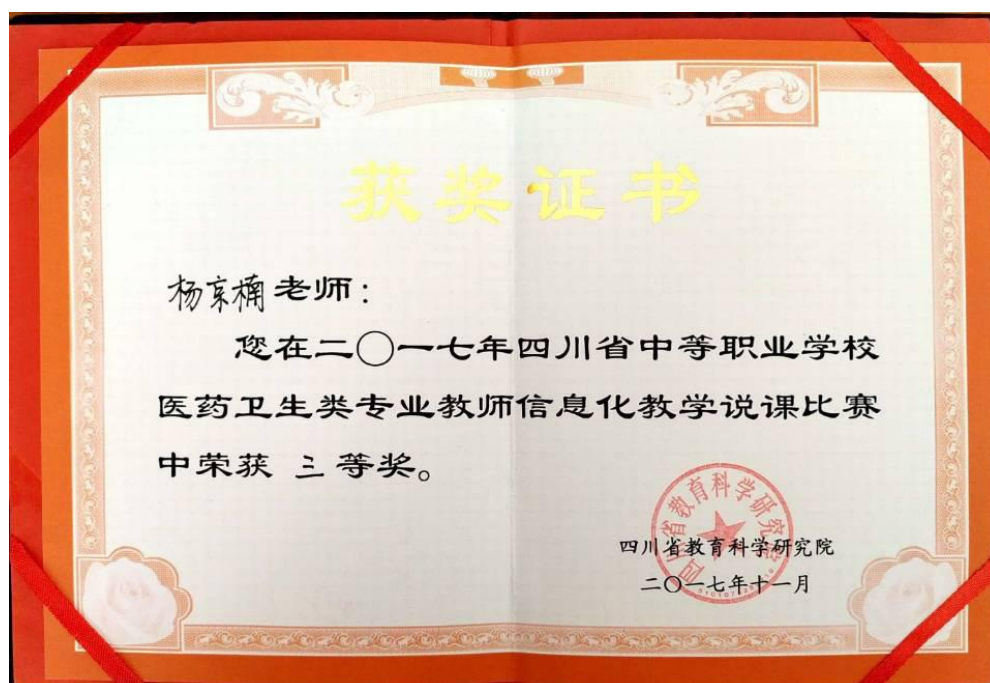 获奖证书
杨京楠老师：
您在二〇一七年四川省中等职业学校
医药卫生类专业教师信息化教学说课比赛
中荣获 三等奖。
四川省教育科学研究院
四川省教育科学研究院
二〇一七年十一月